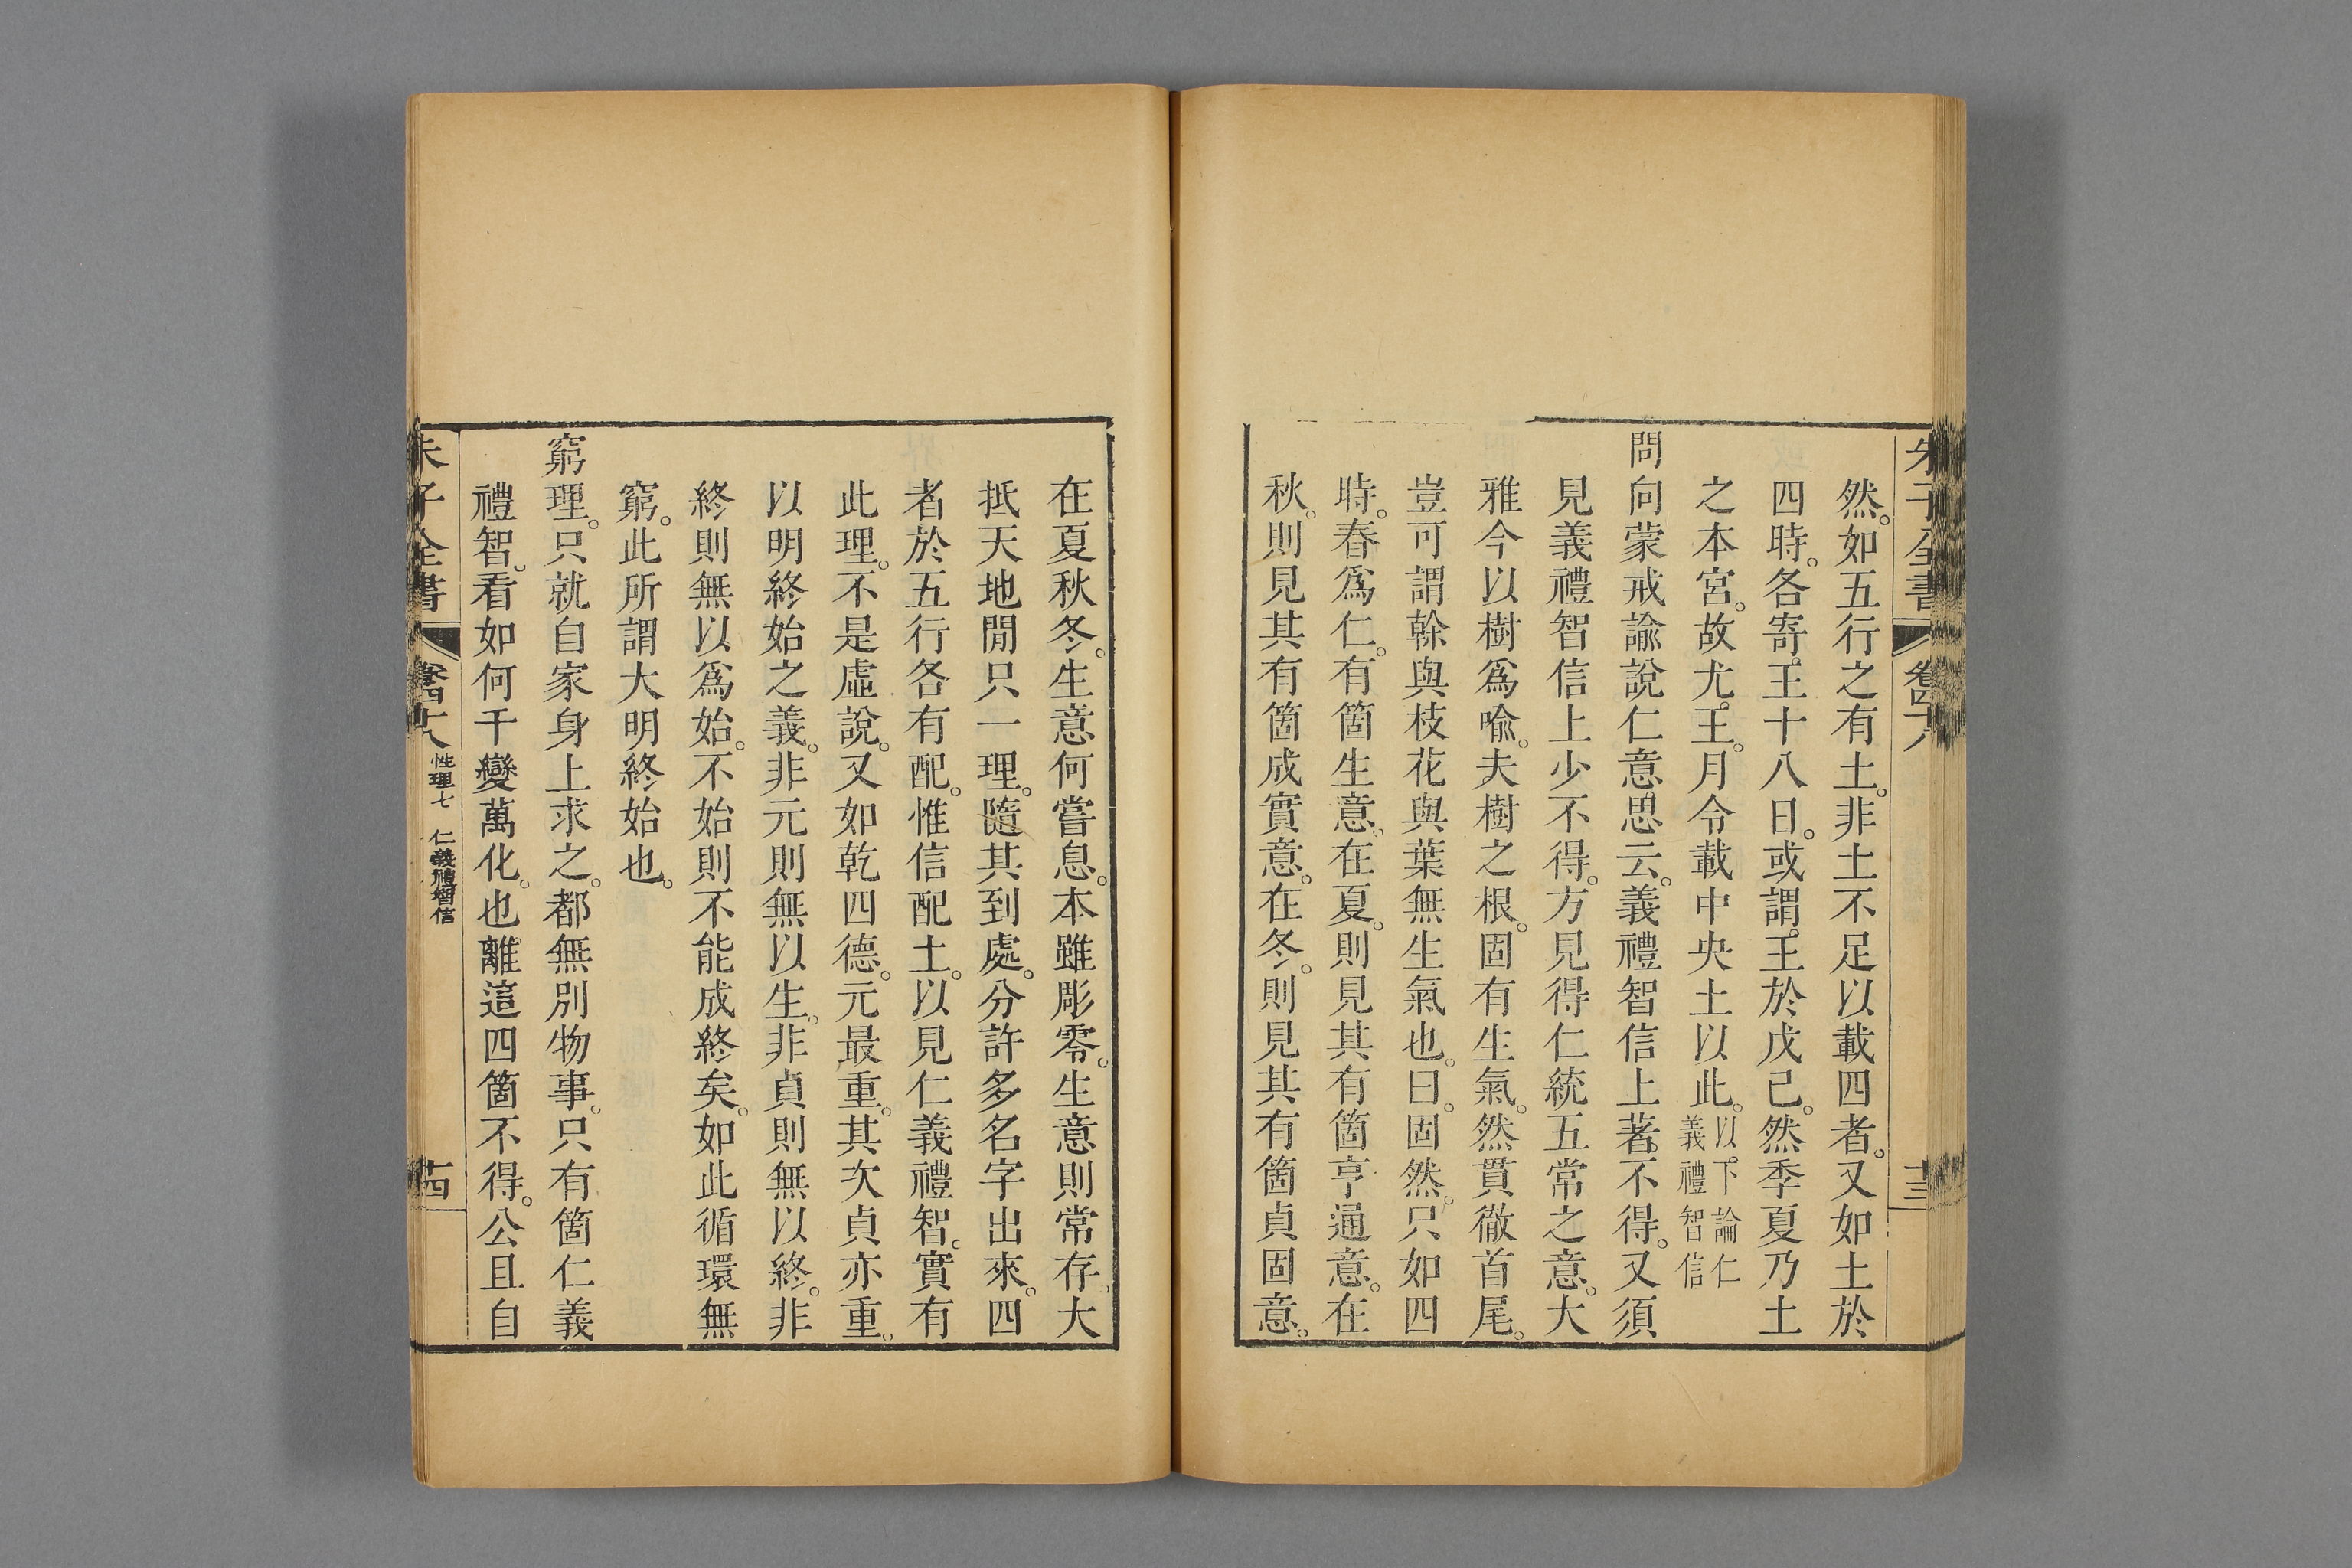 朱子全書 卷四十八 十三
然。如五行之有土。非土不足以載四者。又如土於
四時。各寄王十八日。或謂王於戊己。然季夏乃土
之本宮。故尤王。月令載中央土以此。以下論仁義禮智信
問向蒙戒諭說仁意思云。義禮智信上著不得。又須
見義禮智信上少不得。方見得仁統五常之意。大
雅今以樹爲喩。夫樹之根。固有生氣。然貫徹首尾。
豈可謂榦與枝花與葉無生氣也。曰。固然。只如四
時。春爲仁。有箇生意。在夏。則見其有箇亨通意。在
秋。則見其有箇成實意。在冬。則見其有箇貞固意。
在夏秋冬。生意何嘗息。本雖彫零。生意則常存。大
抵天地閒只一理。隨其到處。分許多名字出來。四
者於五行各有配。惟信配土。以見仁義禮智。實有
此理。不是虛說。又如乾四德。元最重。其次貞亦重。
以明終始之義。非元則無以生。非貞則無以終。非
終則無以爲始。不始則不能成終矣。如此循環無
窮。此所謂大明終始也。
窮理。只就自家身上求之。都無別物事。只有箇仁義
禮智。看如何千變萬化。也離這四箇不得。公且自
朱子全書 卷四十八 性理七 仁義禮智信 十四